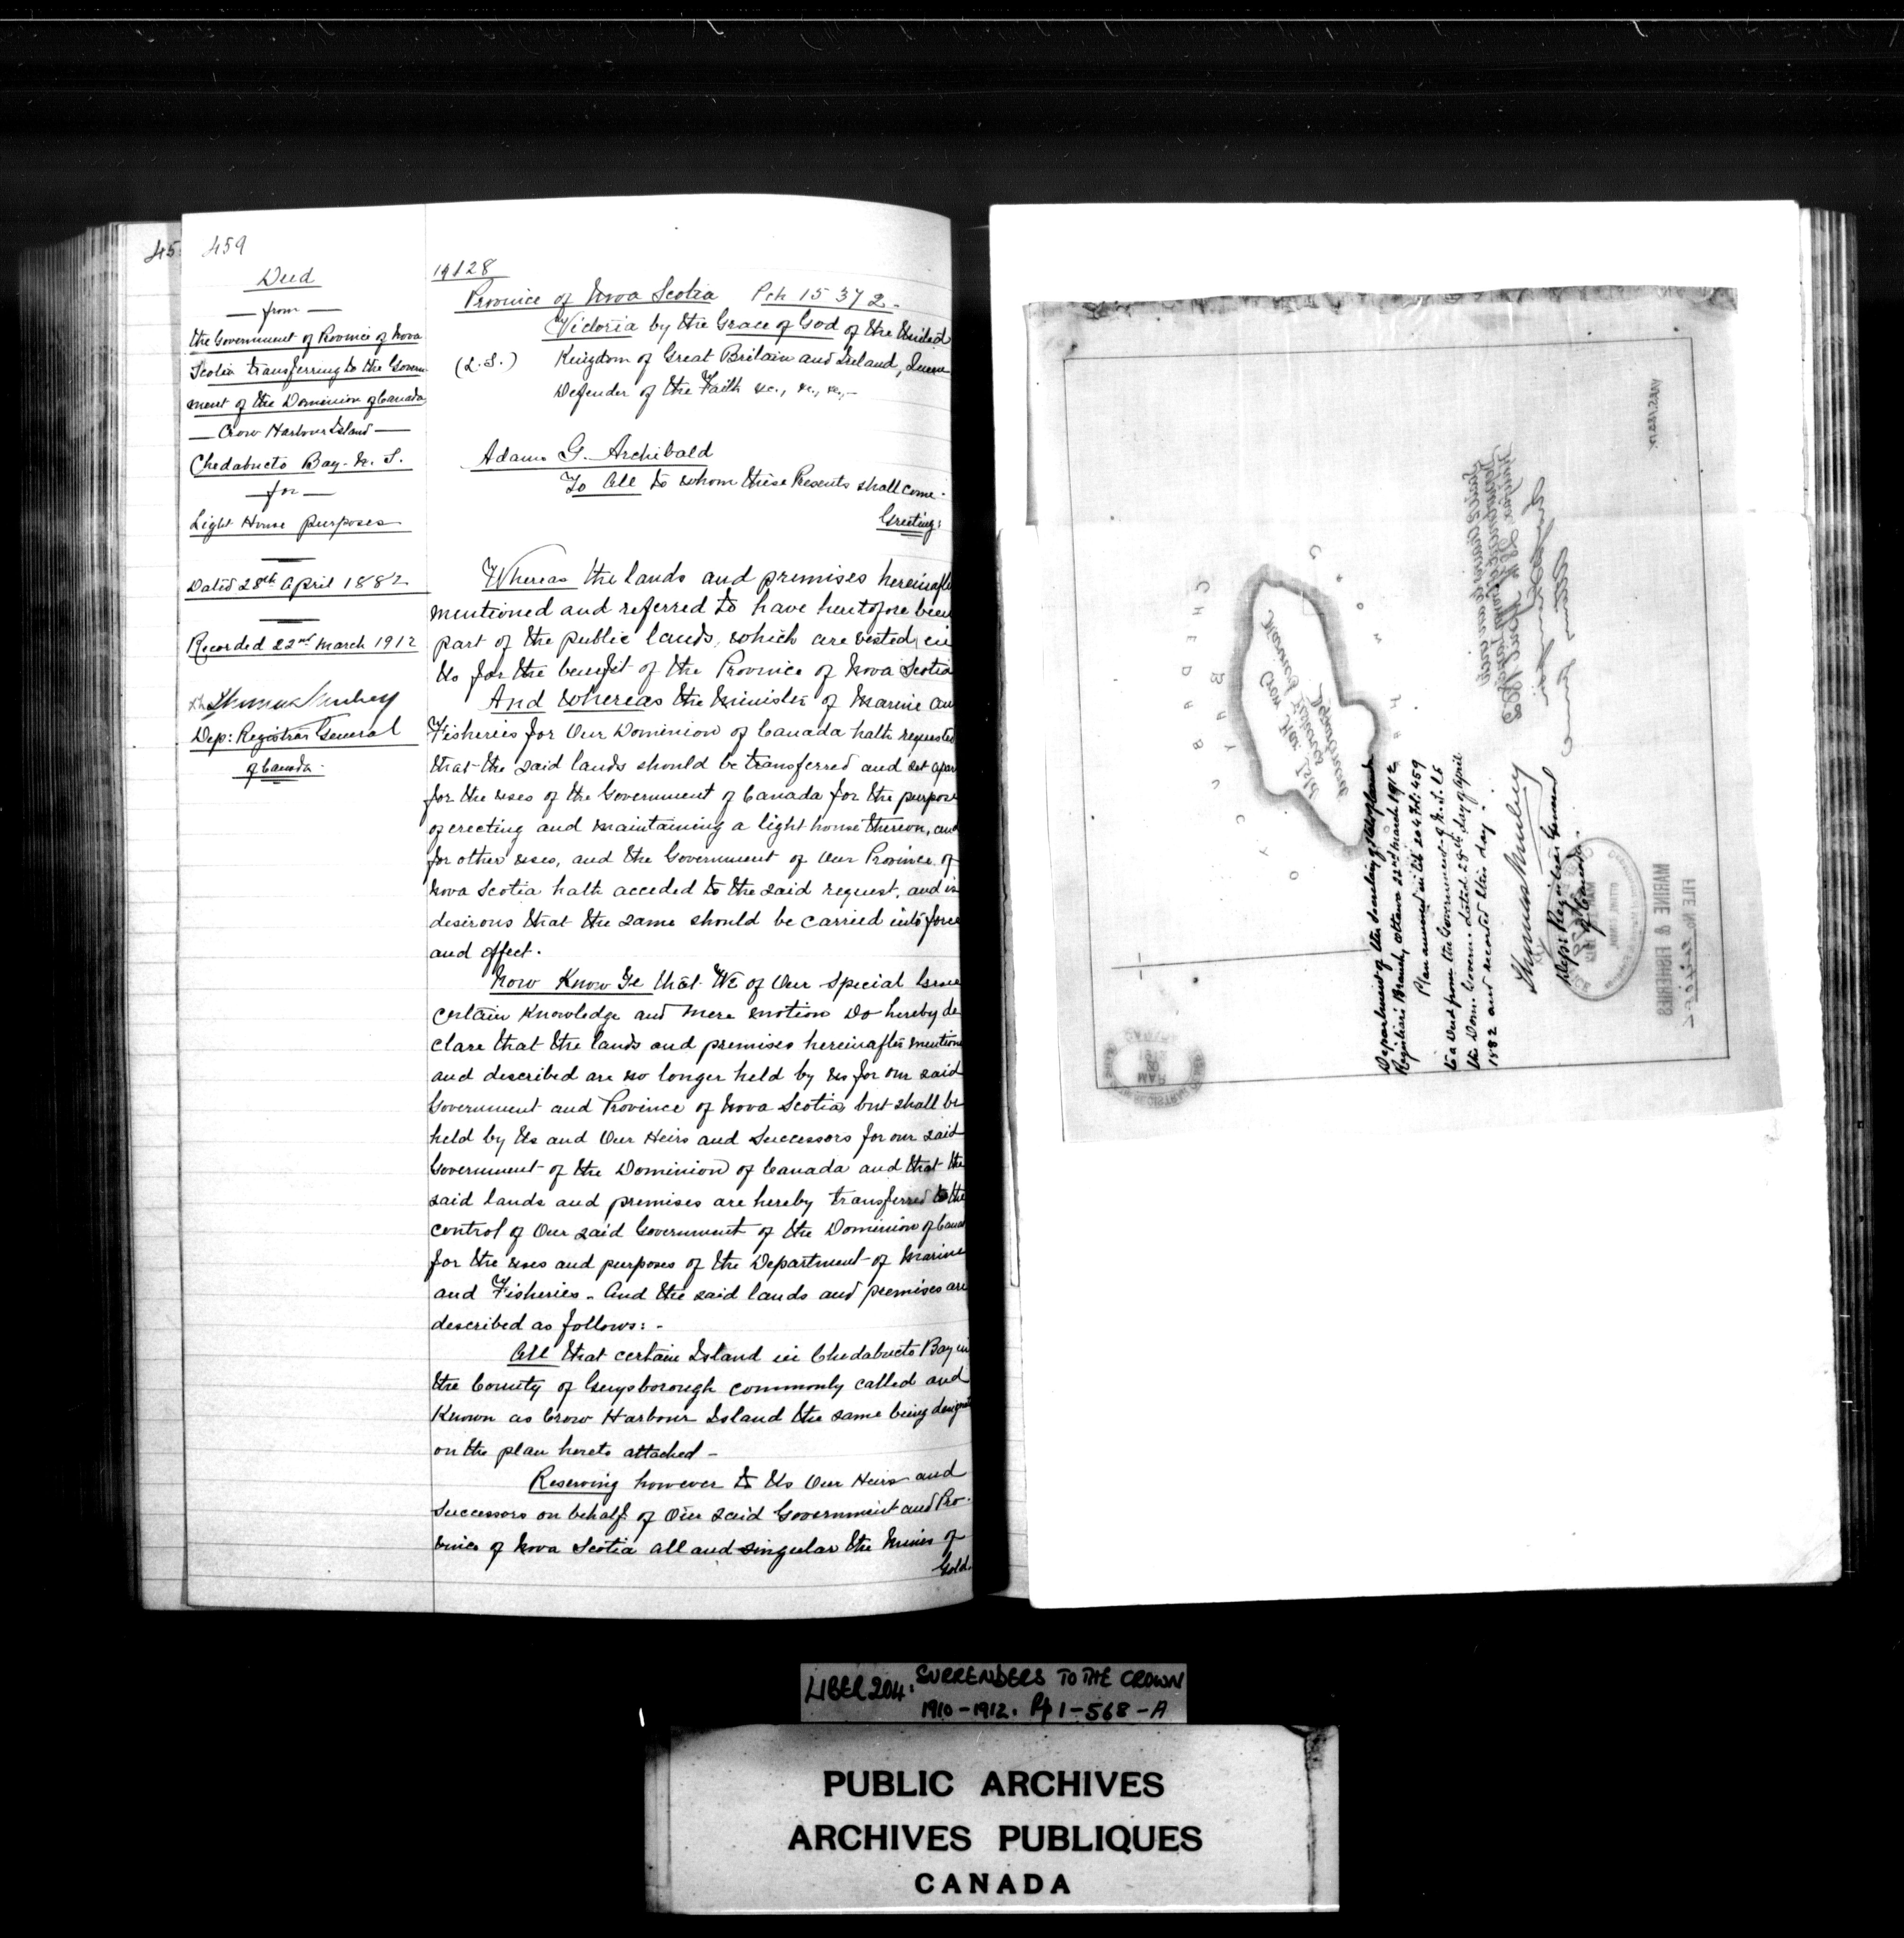 45
459
Deed
— from —
the Government of Province of Nova
Scotia transferring to the Govern-
ment of the Dominion of Canada
— Crow Harbour Island —
Chedabucto Bay - N. S.
— for —
Light House purposes
Dated 28th April 1882
Recorded 22nd March 1912
Thomas Mulvey
Dep: Registrar General
of Canada.
19128
Province of Nova Scotia Pch 15372
Victoria by the Grace of God of the United
(L.S.) Kingdom of Great Britain and Ireland, Queen
Defender of the Faith &c., &c., &c.,-
Adams G. Archibald
To All to whom these Presents shall come -
Greeting:
Whereas the lands and premises hereinafte
mentioned and referred to have heretofore been
part of the public lands, which are vested in
Us for the benefit of the Province of Nova Scotia
And Whereas the Minister of Marine an
Fisheries for Our Dominion of Canada hath requeste
that the said lands should be transferred and set apar
for the uses of the Government of Canada for the purpose
of erecting and maintaining a light house thereon, and
for other uses, and the Government of Our Province of
Nova Scotia hath acceded to the said request, and is
desirous that the same should be carried into force
and effect.
Now Know Ye that We of Our Special Grace
certain Knowledge and mere motion Do hereby de
clare that the lands and premises hereinafter mentione
and described are no longer held by us for our said
Government and Province of Nova Scotia, but shall be
held by Us and Our Heirs and Successors for our said
Government of the Dominion of Canada and that the
said lands and premises are hereby transferred to the
control of Our said Government of the Dominion of Cana
for the uses and purposes of the Department of Marine
and Fisheries - And the said lands and premises are
described as follows: -
All that certain Island in Chedabucto Bay in
the County of Guysborough commonly called and
Known as Crow Harbour Island the same being designat
on the plan hereto attached -
Reserving however to Us Our Heirs and
Successors on behalf of Our said Government and Pro-
vince of Nova Scotia all and singular the Mines of
Gold.
CHEDABUCTO
BAY
Crow Har. Isld
Department of the Secretary of State of Canada
Registrar's Branch, Ottawa 22nd March 1912
Plan annexed in Lib 204 Fol: 459
to a Deed from the Government of N. S. to
the Dom: Govern: dated 28th day of April
1882 and recorded this day.
Thomas Mulvey
Dep: Registrar General
of Canada.
MARINE & FISHERIES
FILE No
LIBER 204: SURRENDERS TO THE CROWN
1910-1912. Pp 1-568-A
PUBLIC ARCHIVES
ARCHIVES PUBLIQUES
CANADA